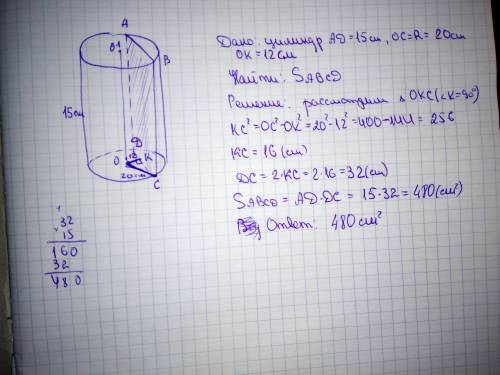 A
O1
B
15см
D
O
12
K
20см
C
32
15
160
32
480
Дано: цилиндр AD=15см, OC=R=20см
OK=12см
Найти: SABCD
Решение: рассмотрим Δ OKC(∠K=90°)
KC²=OC²-OK²=20²-12²=400-144=256
KC=16(см)
DC=2·KC=2·16=32(см)
SABCD=AD·DC=15·32=480(см²)
Ответ: 480см²